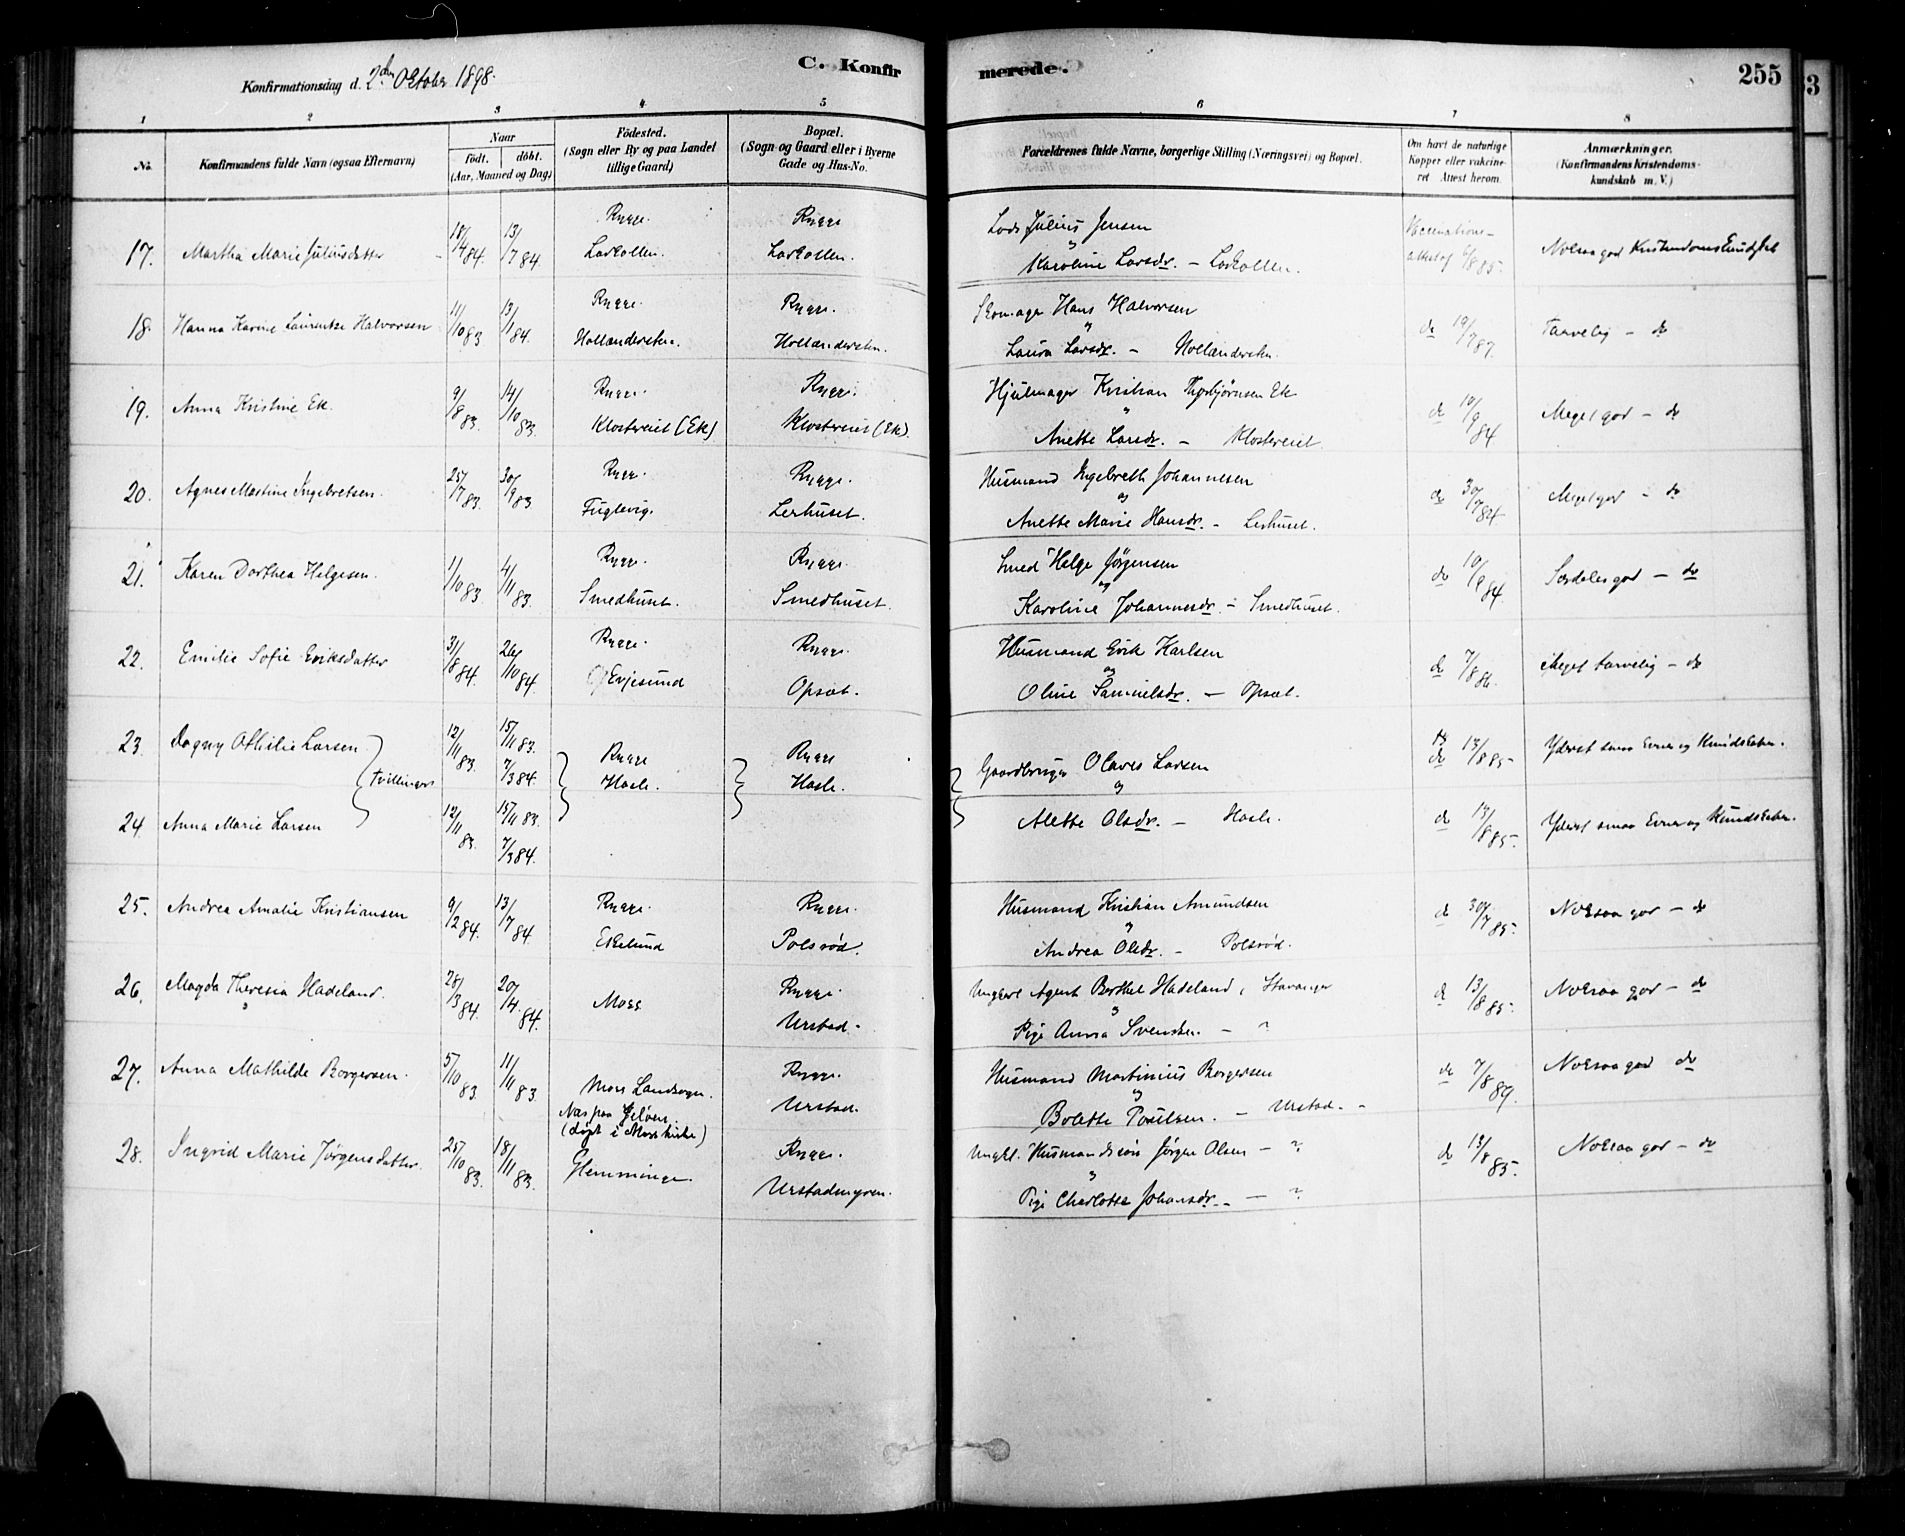 Konfirmationsdag d. 2den Oktober 1898.
C. Konfir
merede.
255
1 2 3 4 5 6 7 8
No.
Konfirmandens fulde Navn (ogsaa Efternavn)
Naar
födt. döbt.
(Aar, Maaned og Dag)
Födested.
(Sogn eller By og paa Landet
tillige Gaard)
Bopæl.
(Sogn og Gaard eller i Byerne
Gade og Hus-No.
Forældrenes fulde Navne, borgerlige Stilling (Næringsvei) og Bopæl.
Om havt de naturlige
Kopper eller vakcine-
ret Attest herom.
Anmærkninger.
(Konfirmandens Kristendoms-
kundskab m. V.)
17. Martha Marie Juliusdatter 18/4 84. 13/7 84. Rygge. Larkollen. Rygge. Larkollen.
Lods Julius Jensen
og
Karoline Larsdr. – Larkollen.
Vaccinations-
attest af 6/8 85.
Noksaa god Kristendomskundskab
18. Hanna Karine Laurentze Halvorsen 11/10 83 13/1 84. Rygge. Hollændersten. Rygge. Hollændersten.
Skomager Hans Halvorsen
og
Laura Larsdr. – Hollændersten.
do 19/7 87.
Tarvelig – do
19. Anna Kristine Ek. 9/8 83. 14/10 83. Rygge. Klostereiet (Ek) Rygge. Klostereiet (Ek).
Hjulmager Kristian Thorbjørnsen Ek
"
Anette Larsdr. – Klostereiet.
do 10/9 84
Meget god – do
20. Agnes Martine Ingebretsen. 25/7 83. 30/9 83 Rygge. Fuglevig. Rygge. Lerhuset.
Husmand Ingebreth Johannesen
og
Anette Marie Hansdr. – Lerhuset.
do 30/7 84
Meget god – do
21. Karen Dorthea Helgesen. 1/10 83. 4/11 83. Rygge. Smedhuset. Rygge. Smedhuset.
Smed Helge Jørgensen
og
Karoline Johannesdr. – Smedhuset.
do 10/9 84.
Særdeles god – do
22. Emilie Sofie Eriksdatter 31/8 84. 26/10 84. Rygge. Evjesund Rygge. Opsæt.
Husmand Erik Karlsen
og
Oline Samuelsdr. – Opsæt.
do 7/8 86.
Meget tarvelig – do
23. Dagny Othilie Larsen. 12/11 83. 15/11 83. 7/3 84. Rygge Hasle. Rygge Hasle.
Tvillinger
Gaardbruger Olaves Larsen
og
Alette Olsdr. – Hasle.
do 13/8 85
Yderst smaa Evner og Kundskaber.
24. Anna Marie Larsen 12/11 83. 15/11 83. 7/3 84.
do 13/8 85.
Yderst smaa Evner og Kundskaber.
25. Andrea Amalie Kristiansen 9/2 84. 13/7 84. Rygge. Ekelund Rygge. Polsrød.
Husmand Kristian Amundsen
og
Andrea Olsdr. – Polsrød.
do 30/7 85.
Noksaa god – do
26. Magda Theresia Hadeland. 28/3 84. 20/4 84. Moss Rygge. Urstad.
Ungkarl Agent Berthel Hadeland, Stavanger
og
Pige Anna Svensken. – "
do 13/8 85.
Noksaa god – do
27. Anna Mathilde Borgersen. 5/10 83. 11/11 83. Moss Landsogn. Næs paa Jeløen. (døpt i Moss kirke) Rygge. Urstad.
Husmand Martinius Borgersen
og
Bolette Poulsen. – Urstad. –
do 7/8 89.
Noksaa god do
28. Ingrid Marie Jørgensdatter. 25/10 83. 18/11 83. Glemminge Rygge. Urstadmyren.
Ungkl. Husmandssøn Jørgen Olsen – ?
og
Pige Charlotte Johansdr. – ?
do 13/8 85.
Noksaa god – do